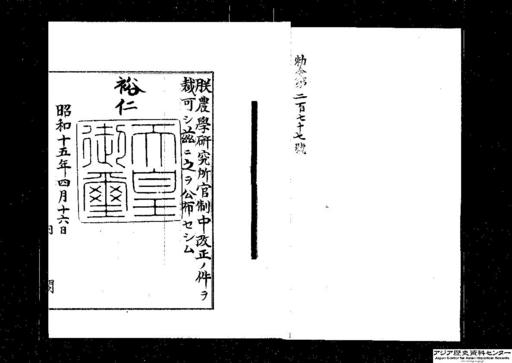 勅令第二百七十七號
朕農學研究所官制中改正ノ件ヲ
裁可シ茲ニ之ヲ公布セシム
裕仁
天皇
御璽
昭和十五年四月十六日
アジア歴史資料センター
Japan Center for Asian Historical Records